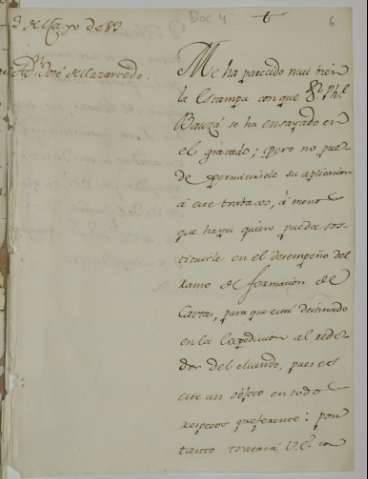 Doc 4
6
3 de Mayo de 89
A Dn. José de Mazarredo.
Me ha parecido mui bien
la Estampa con que Dn. Phe.
Bauzá se ha ensayado en
el gravado; pero no pue-
de permitirsele su aplicacion
á este trabaxo, á menos
que haya quien pueda sos-
tituirle en el desempeño del
ramo de formacion de
Cartas, para que está destinado
en la Expedicion al rede-
dor del Mundo, pues es
este un objeto en todo
respecto preferente: por
tanto tomará V.E. en